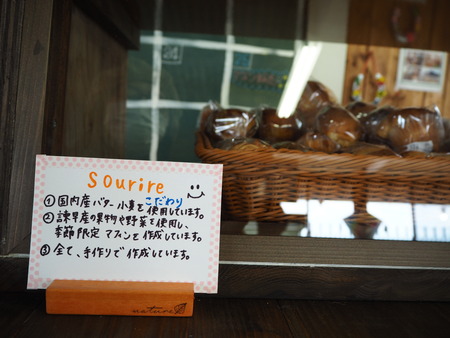 sourire
こだわり
①国内産バター小麦を使用しています。
②諫早産の果物や野菜を使用し、
季節限定マフィンを作成しています。
③全て、手作りで作成しています。
nature